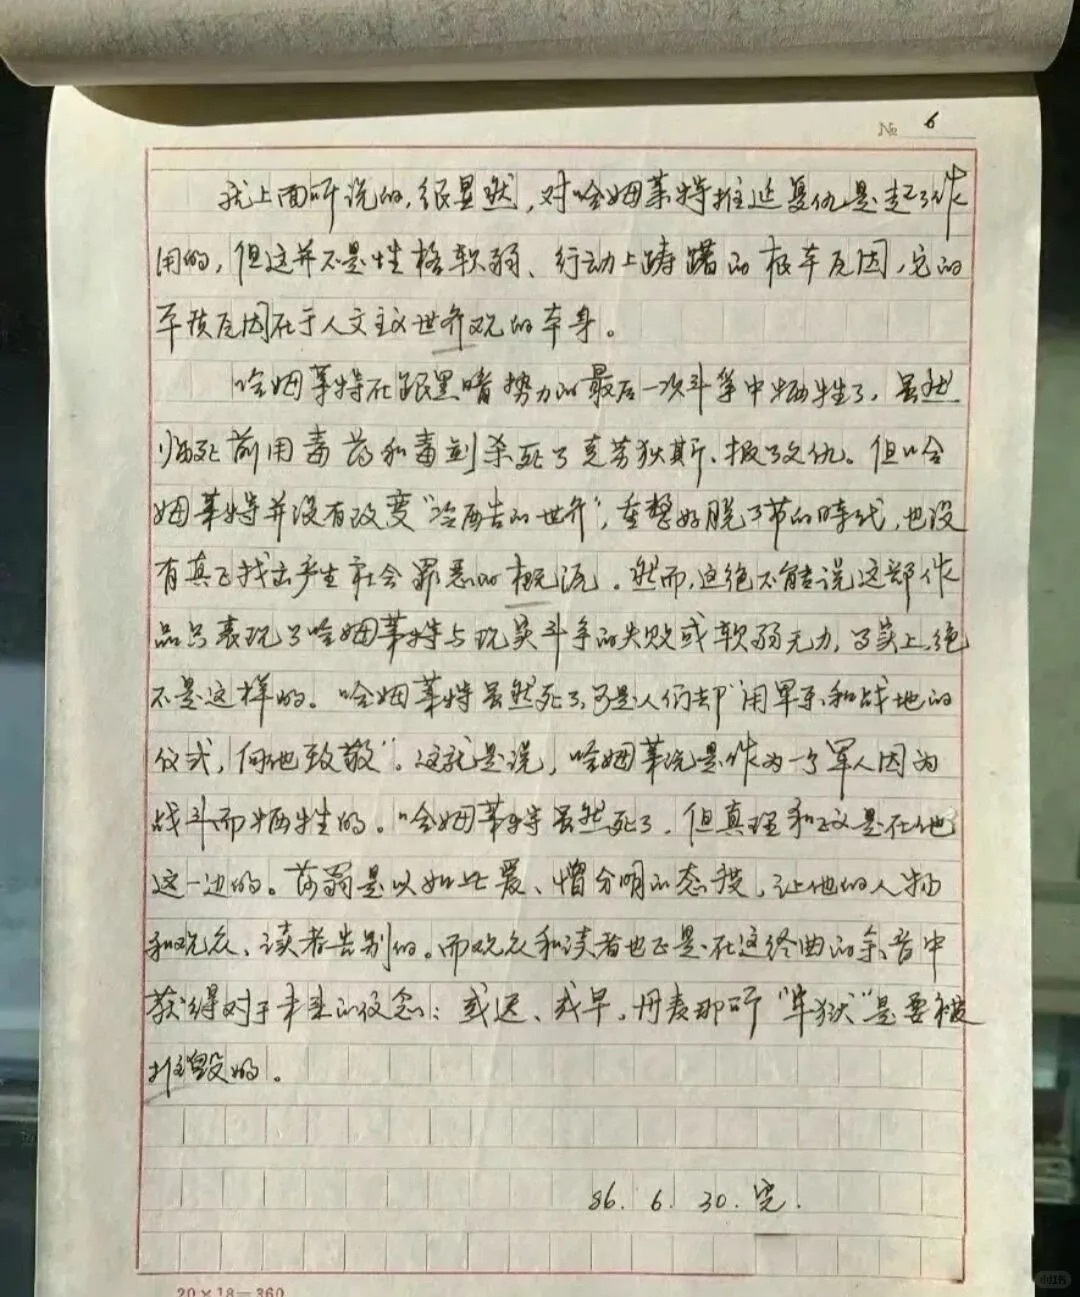 № 6
就上面所说的，很显然，对哈姆莱特推延复仇是起了作
用的，但这并不是性格软弱、行动上踌躇的根本原因，它的
本质原因在于人文主义世界观的本身。
哈姆莱特在跟黑暗势力的最后一次斗争中牺牲了，虽然
临死前用毒药和毒剑杀死了克劳狄斯、报了父仇。但哈
姆莱特并没有改变“冷酷的世界”，重整好脱了节的时代，也没
有真正找出产生社会罪恶的根源。然而，这绝不能说这部作
品只表现了哈姆莱特与现实斗争的失败或软弱无力，事实上，绝
不是这样的。哈姆莱特虽然死了，可是人们却“用军乐和战地的
仪式，向他致敬”。这就是说，哈姆莱特是作为一个军人因为
战斗而牺牲的。哈姆莱特虽然死了，但真理和正义是在他
这一边的。莎翁是以如此爱、憎分明的态度，让他的人物
和观众、读者告别的。而观众和读者也正是在这终曲的余音中
获得对于未来的信念：或迟、或早，丹麦那所“牢狱”是要被
摧毁的。
86. 6. 30. 完.
20×18=360